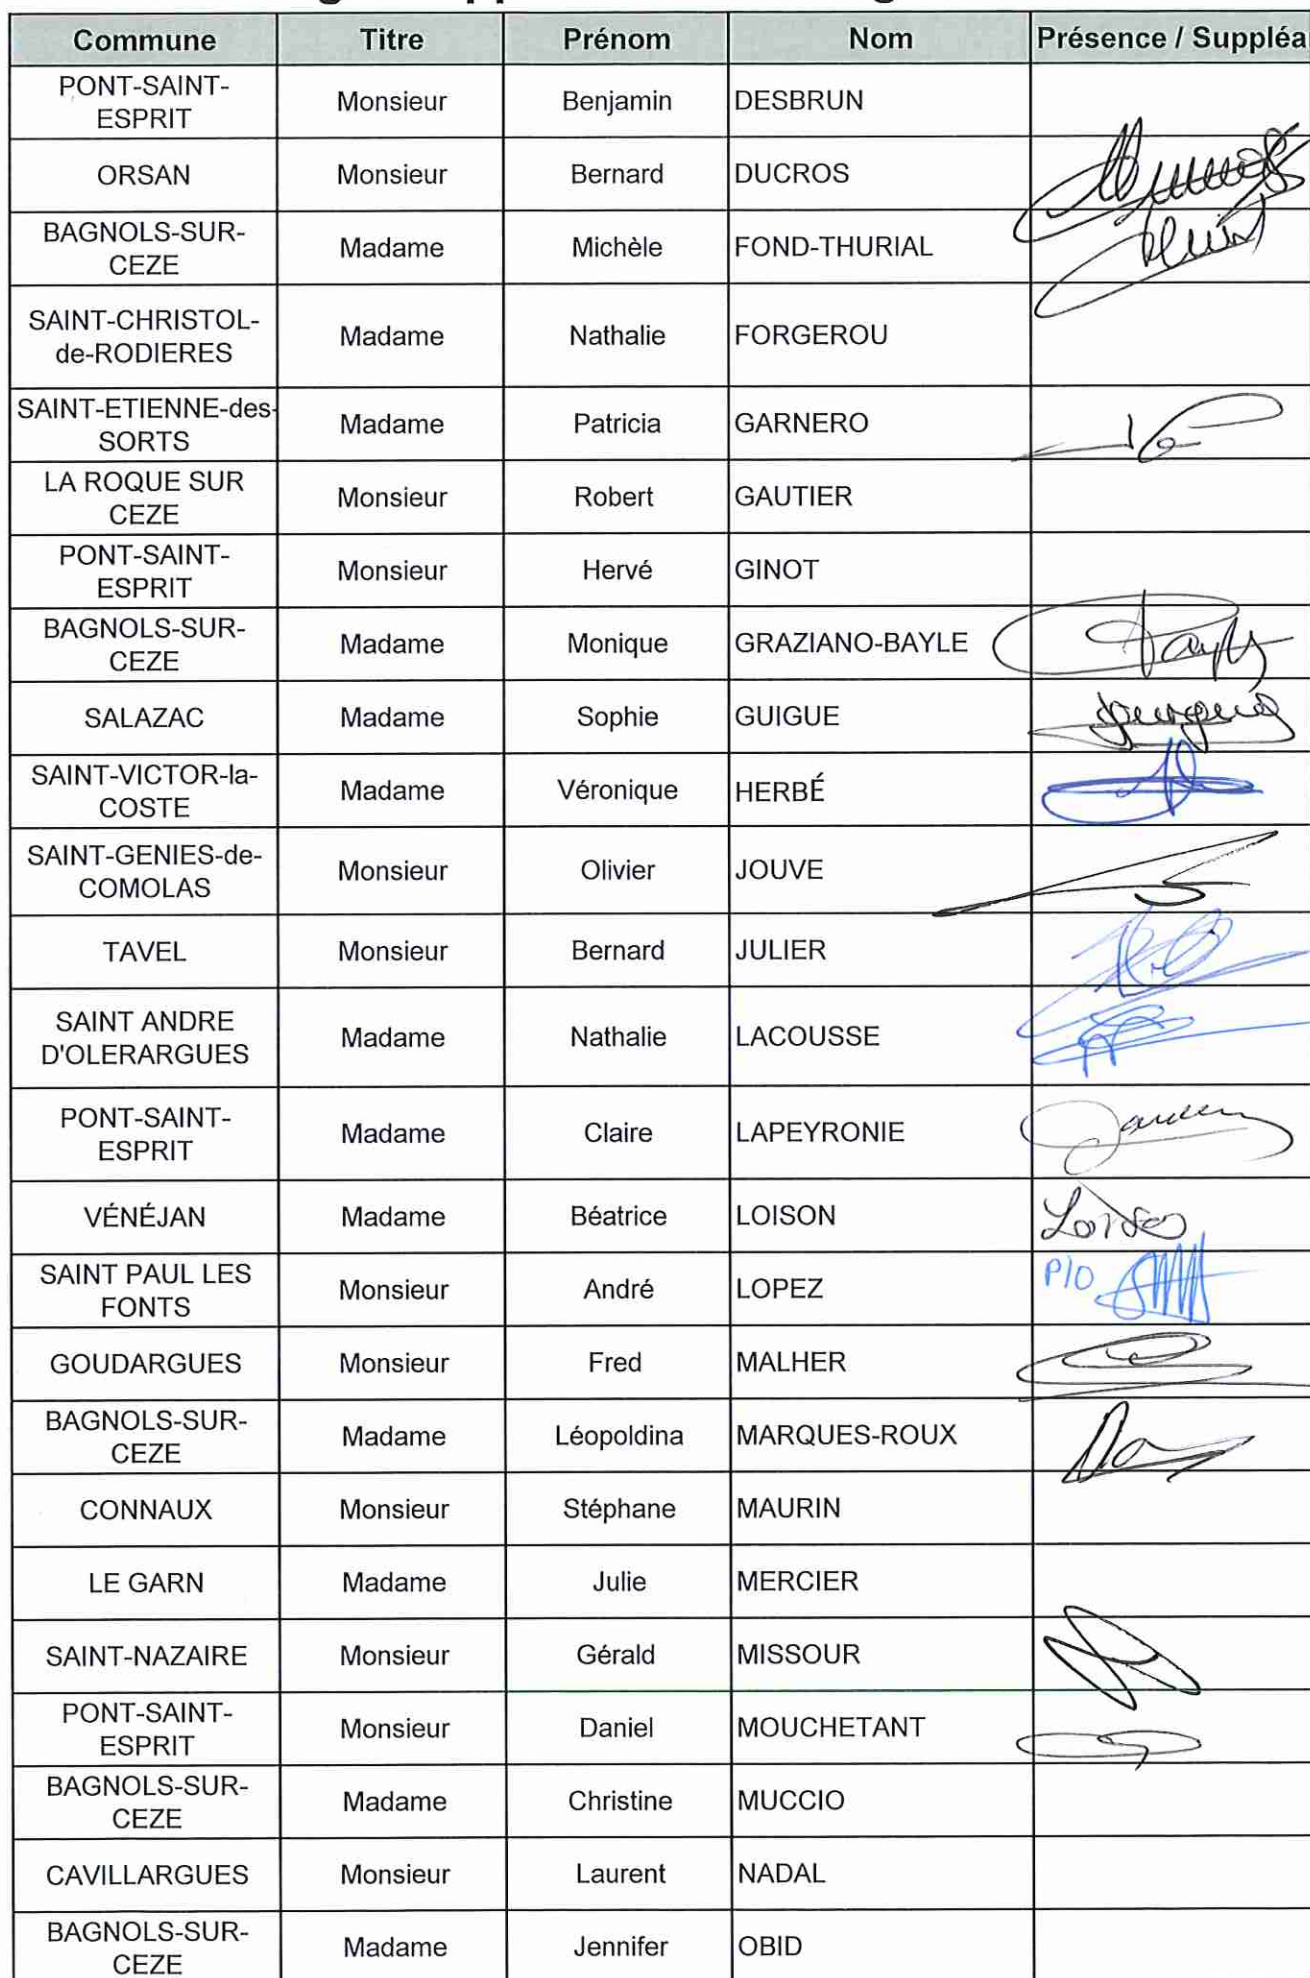 Commune Titre Prénom Nom Présence / Suppléa
PONT-SAINT-
ESPRIT Monsieur Benjamin DESBRUN
ORSAN Monsieur Bernard DUCROS
BAGNOLS-SUR-
CEZE Madame Michèle FOND-THURIAL
SAINT-CHRISTOL-
de-RODIERES Madame Nathalie FORGEROU
SAINT-ETIENNE-des-
SORTS Madame Patricia GARNERO
LA ROQUE SUR
CEZE Monsieur Robert GAUTIER
PONT-SAINT-
ESPRIT Monsieur Hervé GINOT
BAGNOLS-SUR-
CEZE Madame Monique GRAZIANO-BAYLE
SALAZAC Madame Sophie GUIGUE
SAINT-VICTOR-la-
COSTE Madame Véronique HERBÉ
SAINT-GENIES-de-
COMOLAS Monsieur Olivier JOUVE
TAVEL Monsieur Bernard JULIER
SAINT ANDRE
D'OLERARGUES Madame Nathalie LACOUSSE
PONT-SAINT-
ESPRIT Madame Claire LAPEYRONIE
VÉNÉJAN Madame Béatrice LOISON Loison
SAINT PAUL LES
FONTS Monsieur André LOPEZ P/O
GOUDARGUES Monsieur Fred MALHER
BAGNOLS-SUR-
CEZE Madame Léopoldina MARQUES-ROUX
CONNAUX Monsieur Stéphane MAURIN
LE GARN Madame Julie MERCIER
SAINT-NAZAIRE Monsieur Gérald MISSOUR
PONT-SAINT-
ESPRIT Monsieur Daniel MOUCHETANT
BAGNOLS-SUR-
CEZE Madame Christine MUCCIO
CAVILLARGUES Monsieur Laurent NADAL
BAGNOLS-SUR-
CEZE Madame Jennifer OBID